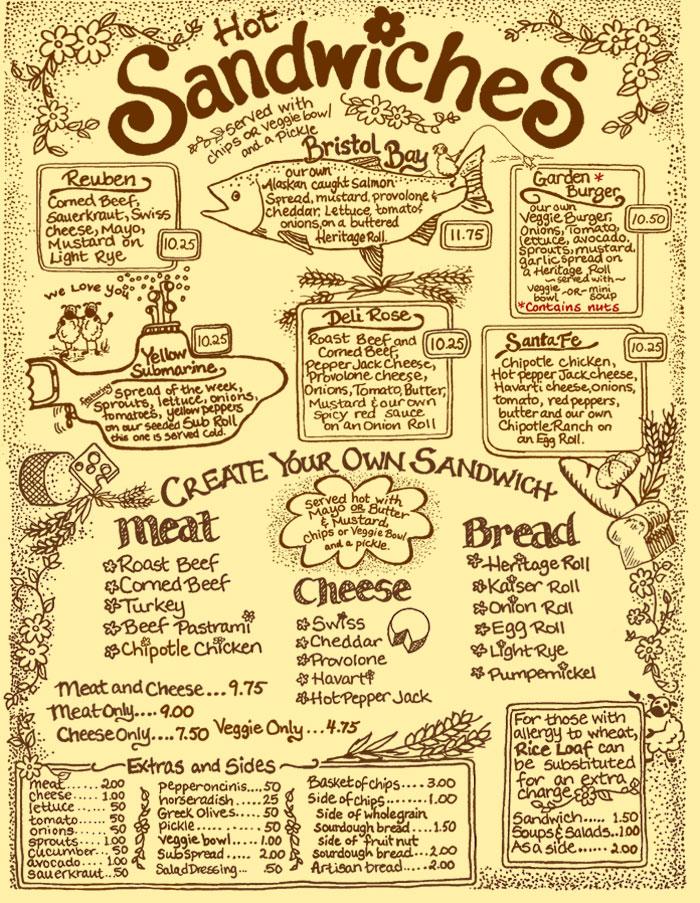 Hot
Sandwiches
served with
chips OR veggie bowl
and a pickle
Bristol Bay
our own
Alaskan caught Salmon
Spread, mustard, provolone &
cheddar, Lettuce, tomato,
onions, on a buttered
Heritage Roll.
11.75
Reuben
Corned Beef,
Sauerkraut, Swiss
Cheese, Mayo,
Mustard on
Light Rye
10.25
Garden *
Burger
our own
Veggie Burger,
Onions, Tomato,
lettuce, avocado,
sprouts, mustard,
garlic spread on
a Heritage Roll
~ served with ~
veggie bowl -OR- mini soup
*Contains nuts
10.50
We Love You
Yellow
Submarine
10.25
featuring
spread of the week,
sprouts, lettuce, onions,
tomatoes, yellow peppers
on our seeded Sub Roll
this one is served cold.
Deli Rose
Roast Beef and
Corned Beef,
Pepper Jack Cheese,
Provolone cheese,
Onions, Tomato, Butter,
Mustard & our own
spicy red sauce
on an Onion Roll
10.25
Santa Fe
Chipotle chicken,
Hot pepper Jack cheese,
Havarti cheese, onions,
tomato, red peppers,
butter and our own
Chipotle Ranch on
an Egg Roll.
10.25
Create Your Own Sandwich
served hot with
Mayo OR Butter
& Mustard,
Chips or Veggie Bowl
and a pickle.
Meat
Roast Beef
Corned Beef
Turkey
Beef Pastrami
Chipotle Chicken
Cheese
Swiss
Cheddar
Provolone
Havarti
Hot Pepper Jack
Bread
Heritage Roll
Kaiser Roll
Onion Roll
Egg Roll
Light Rye
Pumpernickel
Meat and Cheese...9.75
Meat Only....9.00
Cheese Only....7.50 Veggie Only...4.75
Extras and Sides
meat.......2.00
cheese.....1.00
lettuce.....50
tomato.....50
onions......50
sprouts....1.00
cucumber...50
avocado....1.00
sauerkraut...50
Pepperoncinis....50
horseradish....25
Greek Olives....50
pickle....50
veggie bowl....1.00
Sub Spread.....2.00
Salad Dressing....50
Basket of chips....3.00
Side of chips......1.00
Side of wholegrain
sourdough bread....1.50
side of fruit nut
sourdough bread....2.00
Artisan bread.....2.00
For those with
allergy to wheat,
Rice Loaf can
be substituted
for an extra
charge
Sandwich.....1.50
Soups & Salads..1.00
As a side......2.00